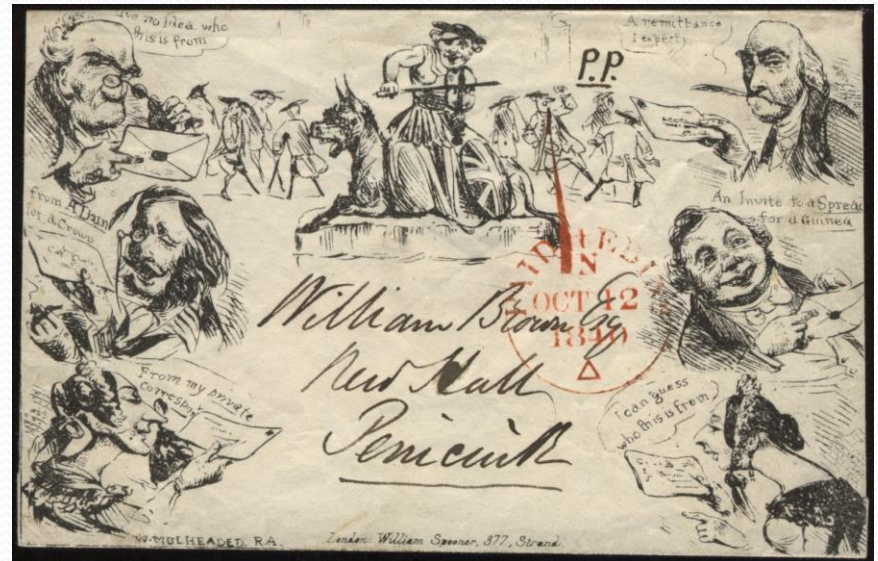 I've no Idea who
this is from
A remittance
I expect
P.P.
from A Dun
for a Crown
An Invite to a Spread
for a Guinea
OCT 12
1840
William Brown Esq
New Hall
Penicuik
From my private
I can guess
who this is from
W. MULHEADED. R.A.
London: William Spooner, 377, Strand.